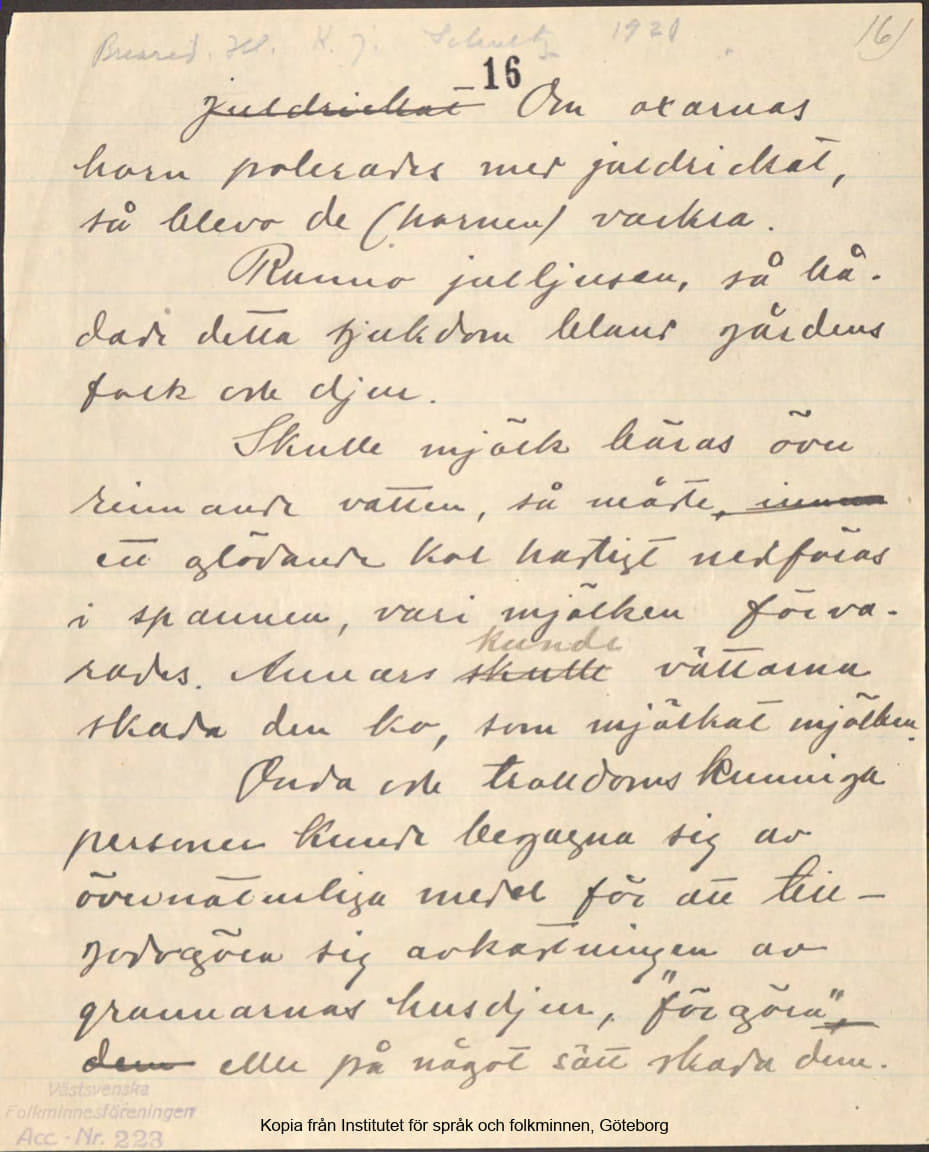 Breared. Hl. K. J. Schultz 1921
16)
16
juldrickat Om oxarnas
horn polerades med juldrickat,
så blevo de (hornen) vackra.
Runno julljusen, så bå-
dade detta sjukdom bland gårdens
folk och djur.
Skulle mjölk bäras över
rinnande vatten, så måste, innan
ett glödande kol hastigt nedföras
i spannen, vari mjölken förva-
kunde
rades. Annars skulle vättarna
skada den ko, som mjölkat mjölken.
Onda och trolldomskunniga
personer kunde begagna sig av
övernaturliga medel för att till-
godogöra sig avkastningen av
grannarnas husdjur, "förgöra",
dem eller på något sätt skada dem.
Västsvenska
Folkminnesföreningen
Acc.-Nr. 223
Kopia från Institutet för språk och folkminnen, Göteborg